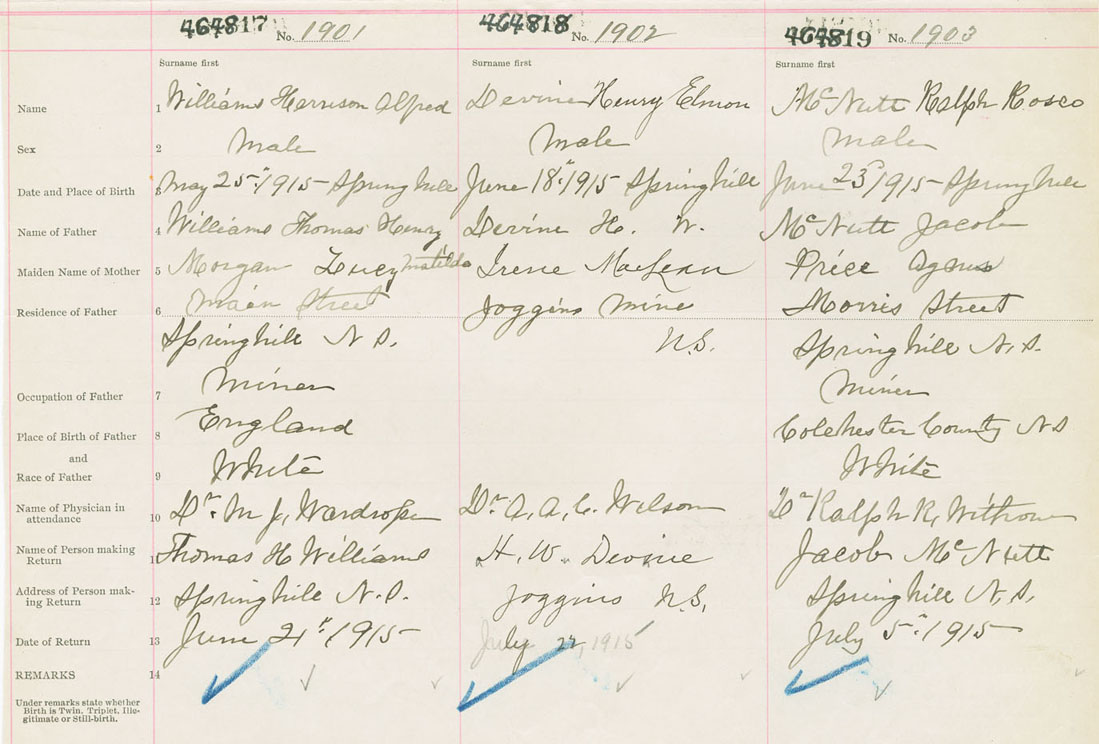 464817 No. 1901 464818 No. 1902 464819 No. 1903
Surname first Surname first Surname first
Name 1 Williams Harrison Alfred Devine Henry Elmon McNutt Ralph Rosco
Sex 2 Male Male Male
Date and Place of Birth 3 May 25th/1915 Springhill June 18th/1915 Springhill June 23rd/1915 Springhill
Name of Father 4 Williams Thomas Henry Devine H. W. McNutt Jacob
Maiden Name of Mother 5 Morgan Lucy Matilda Irene MacLean Price Agnes
Residence of Father 6 Main Street Joggins Mine Morris Street
Springhill N.S. N.S. Springhill N.S.
Occupation of Father 7 Miner Miner
Place of Birth of Father 8 England Colchester County N.S
and
Race of Father 9 White White
Name of Physician in
attendance 10 Dr. M. J. Wardrope Dr. A. A. C. Wilson Dr Ralph R. Withrow
Name of Person making
Return 11 Thomas H Williams H. W. Devine Jacob McNutt
Address of Person mak-
ing Return 12 Springhill N.S. Joggins N.S. Springhill N.S.
Date of Return 13 June 21st/1915 July 22, 1915 July 5th/1915
REMARKS 14
Under remarks state whether
Birth is Twin, Triplet, Ille-
gitimate or Still-birth.